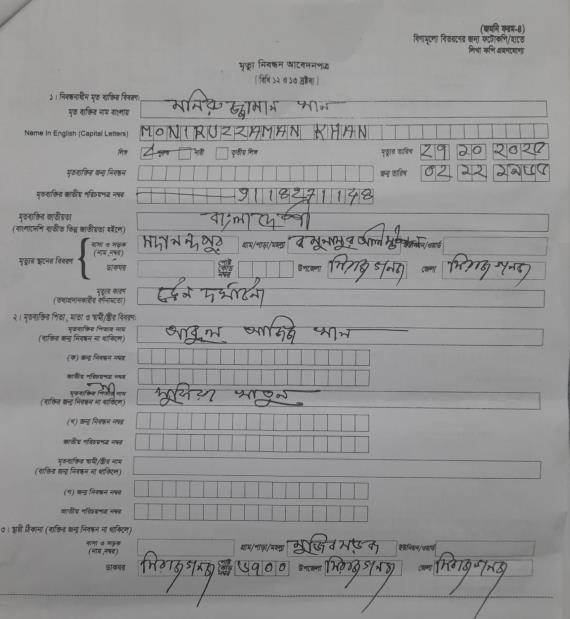 (জমনি ফরম-৪)
বিনামূল্যে বিতরণের জন্য ফটোকপি/হাতে
লিখা কপি গ্রহণযোগ্য
মৃত্যু নিবন্ধন আবেদনপত্র
[বিধি ১২ ও ১৩ দ্রষ্টব্য]
১। নিবন্ধনাধীন মৃত ব্যক্তির বিবরণ:
মৃত ব্যক্তির নাম বাংলায় মনিরুজ্জামান খান
Name In English (Capital Letters) MONIRUZZAMAN KHAN
লিঙ্গ পুরুষ নারী তৃতীয় লিঙ্গ মৃত্যুর তারিখ
মৃতব্যক্তির জন্ম নিবন্ধন জন্ম তারিখ
মৃতব্যক্তির জাতীয় পরিচয়পত্র নম্বর
মৃতব্যক্তির জাতীয়তা
(বাংলাদেশি ব্যতীত ভিন্ন জাতীয়তা হইলে) বাংলাদেশী
মৃত্যুর স্থানের বিবরণ
বাসা ও সড়ক (নাম,নম্বর) সদানন্দপুর গ্রাম/পাড়া/মহল্লা ইউনিয়ন/ওয়ার্ড
ডাকঘর পোষ্ট কোড নম্বর উপজেলা সিরাজগনজ জেলা সিরাজগনজ
মৃত্যুর কারণ
(তথ্যপ্রদানকারীর বর্ণনামতে) ট্রেন দুর্ঘটনা
২। মৃতব্যক্তির পিতা, মাতা ও স্বামী/স্ত্রীর বিবরণ:
মৃতব্যক্তির পিতার নাম
(ব্যক্তির জন্ম নিবন্ধন না থাকিলে) আবুল আজিজ খান
(ক) জন্ম নিবন্ধন নম্বর
জাতীয় পরিচয়পত্র নম্বর
মৃতব্যক্তির নাম
(ব্যক্তির জন্ম নিবন্ধন না থাকিলে) সুফিয়া খাতুন
(খ) জন্ম নিবন্ধন নম্বর
জাতীয় পরিচয়পত্র নম্বর
মৃতব্যক্তির স্বামী/স্ত্রীর নাম
(ব্যক্তির জন্ম নিবন্ধন না থাকিলে)
(গ) জন্ম নিবন্ধন নম্বর
জাতীয় পরিচয়পত্র নম্বর
৩। স্থায়ী ঠিকানা (ব্যক্তির জন্ম নিবন্ধন না থাকিলে)
বাসা ও সড়ক (নাম,নম্বর) গ্রাম/পাড়া/মহল্লা মুজিব সড়ক ইউনিয়ন/ওয়ার্ড
ডাকঘর সিরাজগনজ পোষ্ট কোড নম্বর ৬৭০০ উপজেলা সিরাজগনজ জেলা সিরাজগনজ